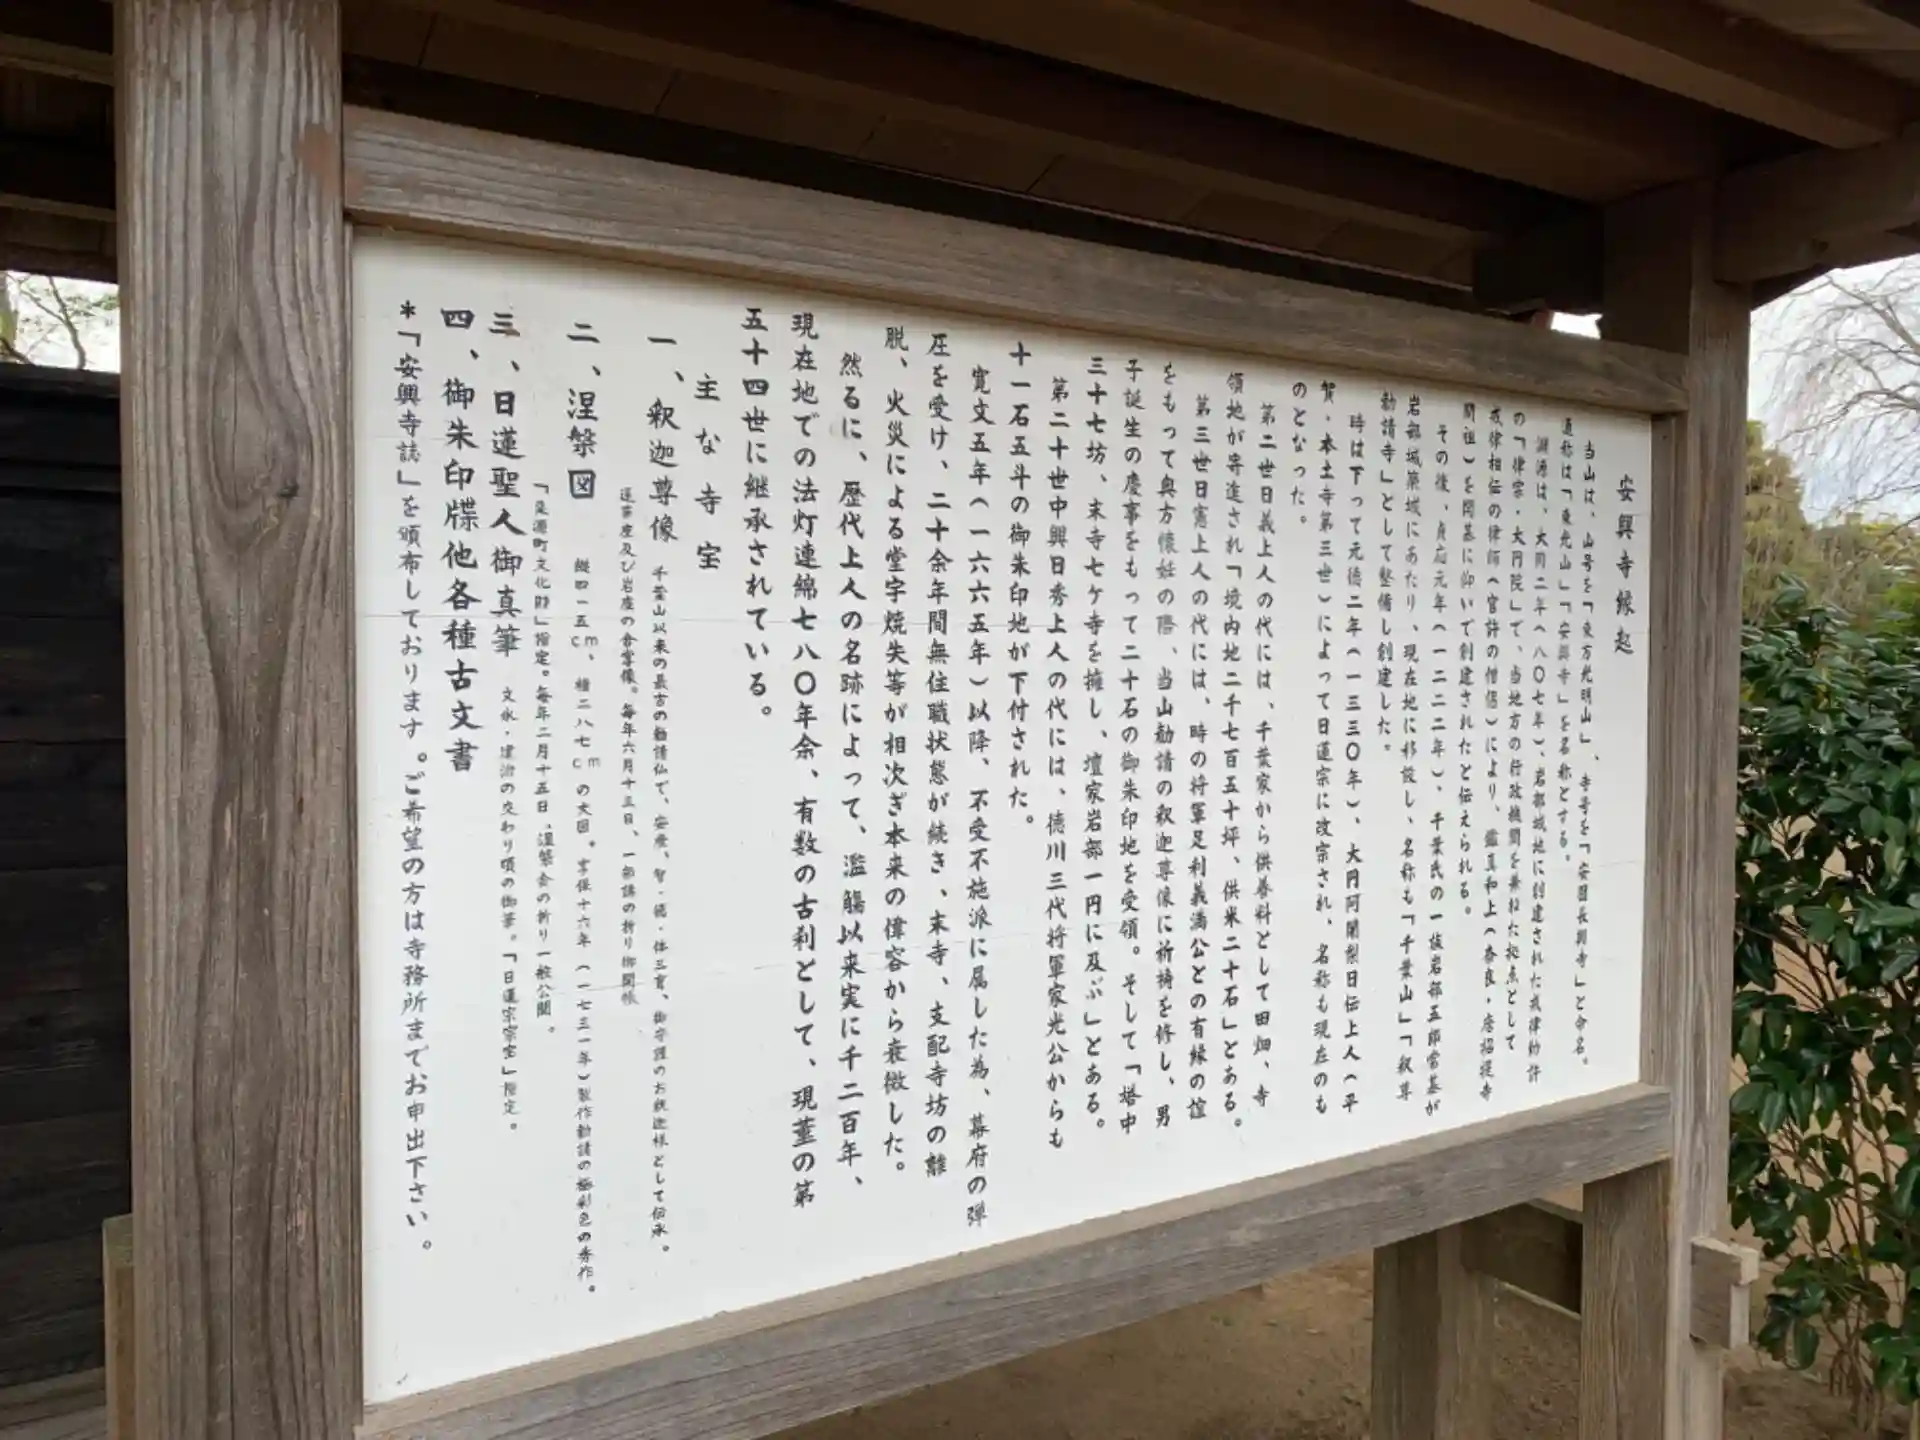 安興寺縁起
当山は、山号を「東方光明山」、寺号を「安国長興寺」と命名。
通称は「東光山」「安興寺」を名称とする。
淵源は、大同二年(八〇七年)、岩部城地に創建された戒律勅許
の「律宗・大円院」で、当地方の行政機関を兼ねた拠点として
戒律相伝の律師(官許の僧侶)により、鑑真和上(奈良・唐招提寺
開祖)を開基に仰いで創建されたと伝えられる。
その後、貞応元年(一二二二年)、千葉氏の一族岩部五郎常基が
岩部城築城にあたり、現在地に移設し、名称も「千葉山」「釈尊
勧請寺」として整備し創建した。
時は下って元徳二年(一三三〇年)、大円阿闍梨日伝上人(平
賀・本土寺第三世)によって日蓮宗に改宗され、名称も現在のも
のとなった。
第二世日義上人の代には、千葉家から供養料として田畑、寺
領地が寄進され「境内地二千七百五十坪、供米二十石」とある。
第三世日憲上人の代には、時の将軍足利義満公との有縁の誼
をもって奥方懐妊の際、当山勧請の釈迦尊像に祈祷を修し、男
子誕生の慶事をもって二十石の御朱印地を受領。そして「塔中
三十七坊、末寺七ケ寺を擁し、壇家岩部一円に及ぶ」とある。
第二十世中興日秀上人の代には、徳川三代将軍家光公からも
十一石五斗の御朱印地が下付された。
寛文五年(一六六五年)以降、不受不施派に属した為、幕府の弾
圧を受け、二十余年間無住職状態が続き、末寺、支配寺坊の離
脱、火災による堂宇焼失等が相次ぎ本来の偉容から衰微した。
然るに、歴代上人の名跡によって、濫觴以来実に千二百年、
現在地での法灯連綿七八〇年余、有数の古刹として、現董の第
五十四世に継承されている。
主な寺宝
一、釈迦尊像 千葉山以来の最古の勧請仏で、安産、智・徳・体三育、御守護のお釈迦様として伝承。
蓮華座及び岩座の合掌像。毎年六月十三日、一部講の祈り御開帳
二、涅槃図 縦四一五cm、横二八七cmの大図。享保十六年(一七三一年)製作勧請の極彩色の秀作。
「栗源町文化財」指定。毎年二月十五日、涅槃会の祈り一般公開。
三、日蓮聖人御真筆 文永・建治の交わり頃の御筆。「日蓮宗宗宝」指定。
四、御朱印牒他各種古文書
*「安興寺誌」を頒布しております。ご希望の方は寺務所までお申出下さい。